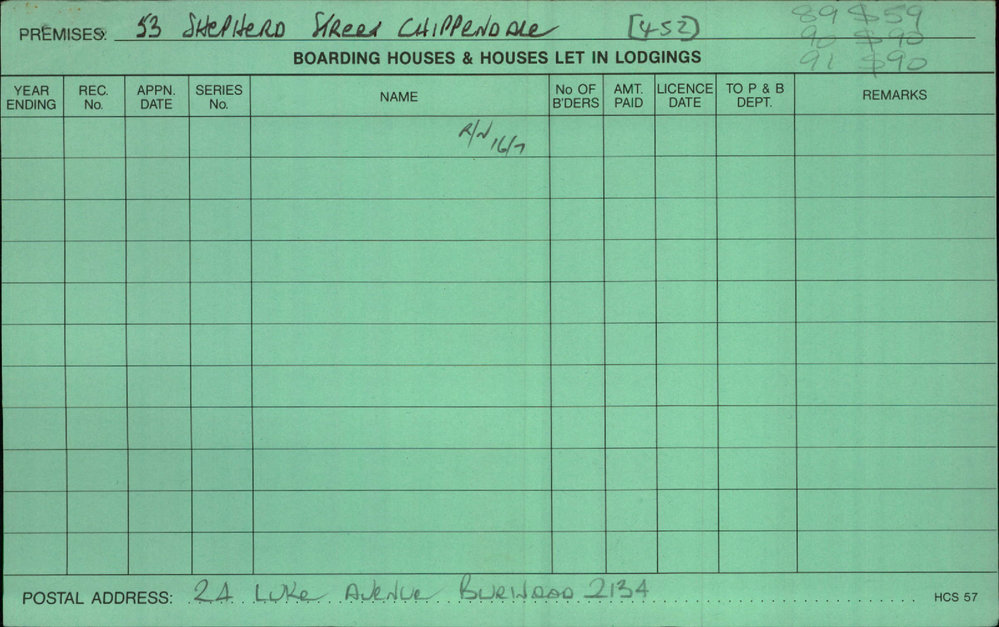 PREMISES: 53 SHEPHERD STREET CHIPPENDALE [452] 89 $59
90 $90
91 $90
BOARDING HOUSES & HOUSES LET IN LODGINGS
YEAR ENDING REC. No. APPN. DATE SERIES No. NAME No OF B'DERS AMT. PAID LICENCE DATE TO P & B DEPT. REMARKS
R/N 16/7
POSTAL ADDRESS: 2A LUKE AVENUE BURWOOD 2134 HCS 57